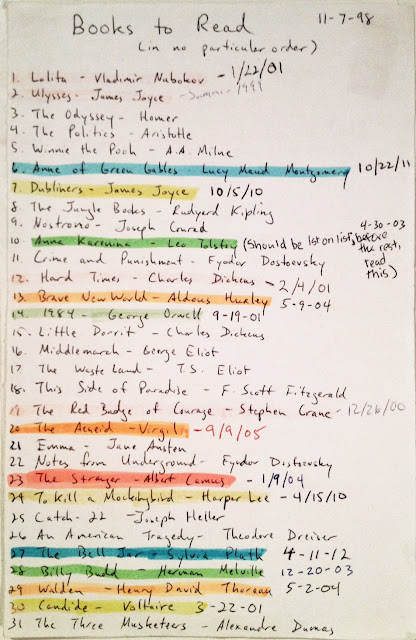 Books to Read 11-7-98
(in no particular order)
1. Lolita - Vladimir Nabokov - 1/22/01
2. Ulysses - James Joyce - Summer 1999
3. The Odyssey - Homer
4. The Politics - Aristotle
5. Winnie the Pooh - A.A. Milne
6. Anne of Green Gables - Lucy Maud Montgomery 10/22/11
7. Dubliners - James Joyce 10/5/10
8. The Jungle Books - Rudyard Kipling
9. Nostromo - Joseph Conrad
10. Anna Karenina - Leo Tolstoy (Should be 1st on list, before the rest, read this) 4-30-03
11. Crime and Punishment - Fyodor Dostoevsky
12. Hard Times - Charles Dickens - 2/4/01
13. Brave New World - Aldous Huxley 5-9-04
14. 1984 - George Orwell 9-19-01
15. Little Dorrit - Charles Dickens
16. Middlemarch - George Eliot
17 The Waste Land - T.S. Eliot
18. This Side of Paradise - F. Scott Fitzgerald
19 The Red Badge of Courage - Stephen Crane - 12/26/00
20 The Aeneid - Virgil - 9/9/05
21 Emma - Jane Austen
22 Notes from Underground - Fyodor Dostoevsky
23 The Stranger - Albert Camus - 1/9/04
24 To Kill a Mockingbird - Harper Lee - 4/15/10
25 Catch-22 - Joseph Heller
26 An American Tragedy - Theodore Dreiser
27 The Bell Jar - Sylvia Plath 4-11-12
28 Billy Budd - Herman Melville 12-20-03
29 Walden - Henry David Thoreau 5-2-04
30 Candide - Voltaire 3-22-01
31 The Three Musketeers - Alexandre Dumas